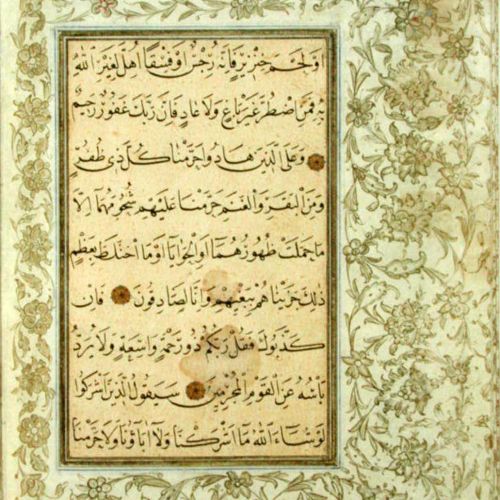 اَوْ لَحْمَ خِنْزِيرٍ فَاِنَّهُ رِجْسٌ اَوْ فِسْقًا اُهِلَّ لِغَيْرِ اللهِ
بِهِ فَمَنِ اضْطُرَّ غَيْرَ بَاغٍ وَلَا عَادٍ فَاِنَّ رَبَّكَ غَفُورٌ رَحِيمٌ
وَعَلَى الَّذِينَ هَادُوا حَرَّمْنَا كُلَّ ذِي ظُفُرٍ
وَمِنَ الْبَقَرِ وَالْغَنَمِ حَرَّمْنَا عَلَيْهِمْ شُحُومَهُمَا اِلَّا
مَا حَمَلَتْ ظُهُورُهُمَا اَوِ الْحَوَايَا اَوْ مَا اخْتَلَطَ بِعَظْمٍ
ذٰلِكَ جَزَيْنَاهُمْ بِبَغْيِهِمْ وَاِنَّا لَصَادِقُونَ فَاِنْ
كَذَّبُوكَ فَقُلْ رَبُّكُمْ ذُو رَحْمَةٍ وَاسِعَةٍ وَلَا يُرَدُّ
بَأْسُهُ عَنِ الْقَوْمِ الْمُجْرِمِينَ سَيَقُولُ الَّذِينَ اَشْرَكُوا
لَوْ شَاءَ اللهُ مَا اَشْرَكْنَا وَلَا اٰبَاؤُنَا وَلَا حَرَّمْنَا